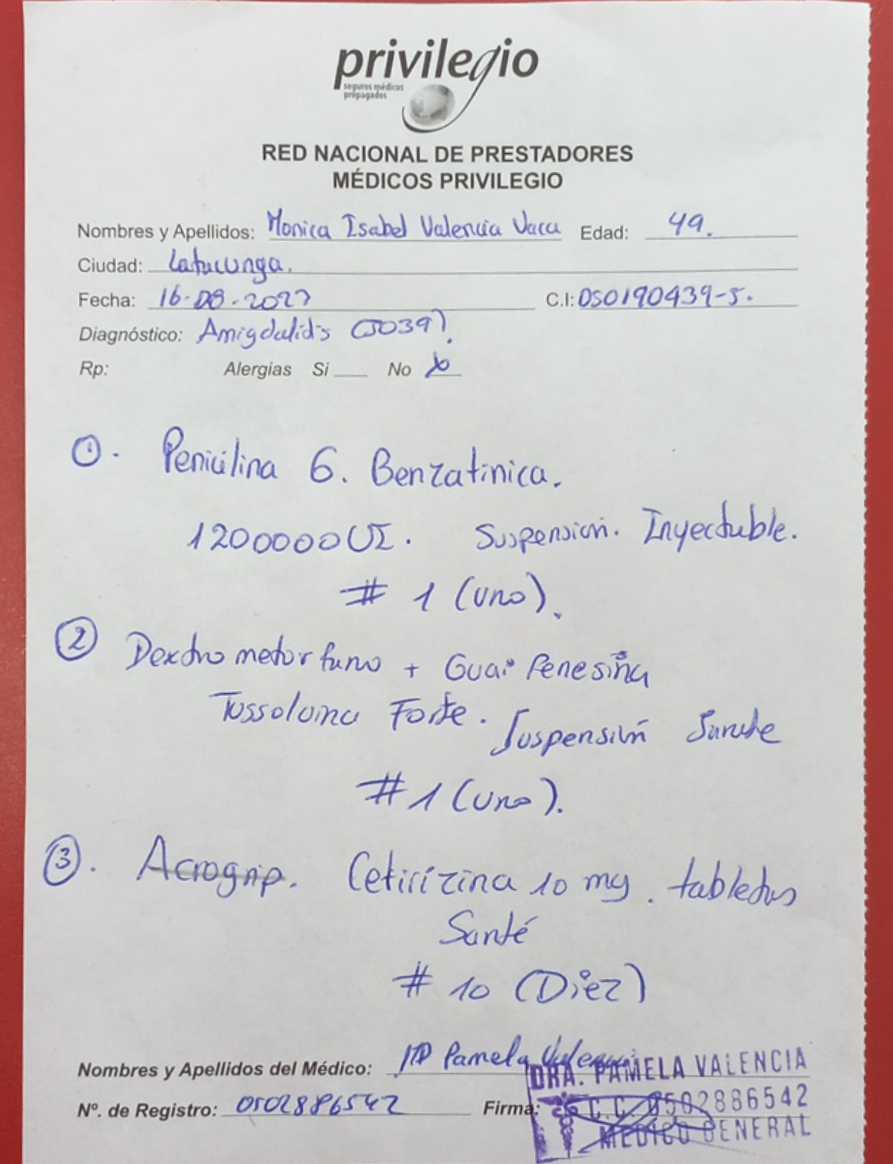 privilegio
seguros médicos
prepagados
RED NACIONAL DE PRESTADORES
MÉDICOS PRIVILEGIO
Nombres y Apellidos: Monica Isabel Valencia Vaca Edad: 49.
Ciudad: Latacunga.
Fecha: 16-08-2022 C.I: 050190439-5.
Diagnóstico: Amigdalitis (J039).
Rp: Alergias Si No x
1. Penicilina G. Benzatinica.
1200000UI. Suspension. Inyectable.
# 1 (uno).
2 Dextrometorfano + Guaifenesina
Tussolvina Forte. Suspensión
#1 (uno).
3. Acrogrip. Cetirizina 10 mg. tabletas
Santé
# 10 (Diez)
Nombres y Apellidos del Médico: MD Pamela Valencia
Nº. de Registro: 0502886542 Firma:
DRA. PAMELA VALENCIA
C.C. 0502886542
MEDICO GENERAL